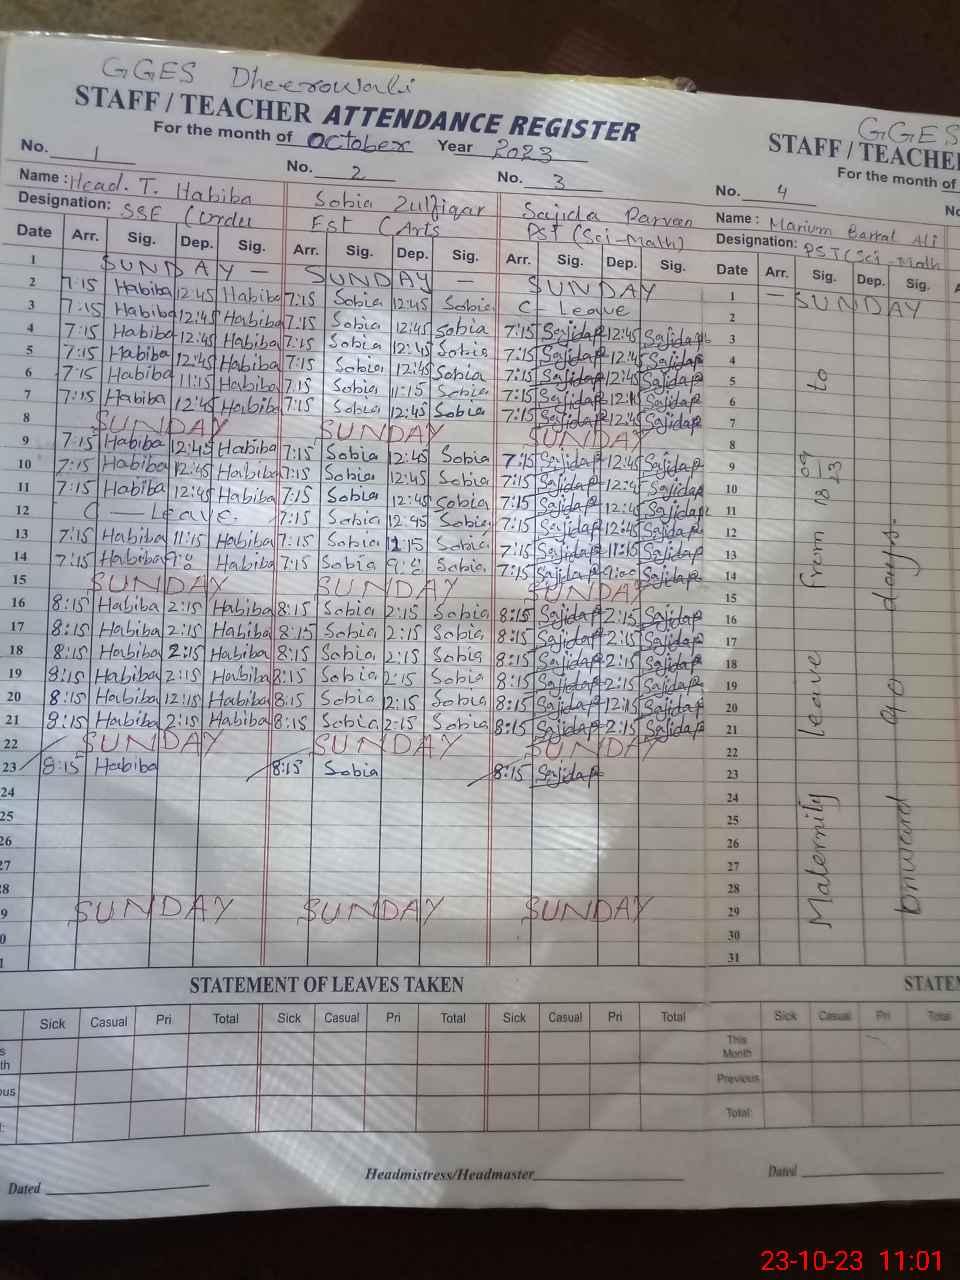 GGES Dheerowali
STAFF / TEACHER ATTENDANCE REGISTER
For the month of October Year 2023
No. 1 No. 2 No. 3
Name : Head. T. Habiba Sobia Zulfiqar Sajida Parveen
Designation: SSE (Urdu Est (Arts PST (Sci-Math)
Date Arr. Sig. Dep. Sig. Arr. Sig. Dep. Sig. Arr. Sig. Dep. Sig.
1 SUNDAY — SUNDAY — SUNDAY
2 7:15 Habiba 12:45 Habiba 7:15 Sobia 12:45 Sobia C- Leave
3 7:15 Habiba 12:45 Habiba 7:15 Sobia 12:45 Sobia 7:15 Sajidap 12:45 Sajidap
4 7:15 Habiba 12:45 Habiba 7:15 Sobia 12:45 Sobia 7:15 Sajidap 12:45 Sajidap
5 7:15 Habiba 12:45 Habiba 7:15 Sobia 12:45 Sobia 7:15 Sajidap 12:45 Sajidap
6 7:15 Habiba 11:15 Habiba 7:15 Sobia 11:15 Sobia 7:15 Sajidap Sajidap
7 7:15 Habiba 12:45 Habiba 7:15 Sobia 12:45 Sobia 7:15 Sajidap 12:45 Sajidap
8 SUNDAY SUNDAY SUNDAY
9 7:15 Habiba 12:45 Habiba 7:15 Sobia 12:45 Sobia 7:15 Sajidap 12:45 Sajidap
10 7:15 Habiba 12:45 Habiba 7:15 Sobia 12:45 Sobia 7:15 Sajidap 12:45 Sajidap
11 7:15 Habiba 12:45 Habiba 7:15 Sobia 12:45 Sobia 7:15 Sajidap 12:45 Sajidap
12 C — Leave. 7:15 Sobia 12:45 Sobia 7:15 Sajidap 12:45 Sajidap
13 7:15 Habiba 11:15 Habiba 7:15 Sobia 11:15 Sobia 7:15 Sajidap 11:15 Sajidap
14 7:15 Habiba Habiba 7:15 Sobia Sobia 7:15 Sajidap 9:00 Sajidap
15 SUNDAY SUNDAY SUNDAY
16 8:15 Habiba 2:15 Habiba 8:15 Sobia 2:15 Sobia 8:15 Sajidap 2:15 Sajidap
17 8:15 Habiba 2:15 Habiba 8:15 Sobia 2:15 Sobia 8:15 Sajidap 2:15 Sajidap
18 8:15 Habiba 2:15 Habiba 8:15 Sobia 2:15 Sobia 8:15 Sajidap 2:15 Sajidap
19 8:15 Habiba 2:15 Habiba 8:15 Sobia 2:15 Sobia 8:15 Sajidap 2:15 Sajidap
20 8:15 Habiba 12:15 Habiba 8:15 Sobia 12:15 Sobia 8:15 Sajidap 12:15 Sajidap
21 8:15 Habiba 2:15 Habiba 8:15 Sobia 2:15 Sobia 8:15 Sajidap 2:15 Sajidap
22 SUNDAY SUNDAY SUNDAY
23 8:15 Habiba 8:15 Sobia 8:15 Sajidap
24
25
26
27
28
9 SUNDAY SUNDAY SUNDAY
0
1
STATEMENT OF LEAVES TAKEN
Sick Casual Pri Total Sick Casual Pri Total Sick Casual Pri Total
s
th
ous
l:
Headmistress/Headmaster
Dated
GGES
STAFF / TEACHE
For the month of
No. 4
Name : Marium Barkat Ali
Designation: PST (Sci-Math
Date Arr. Sig. Dep. Sig.
1 — SUNDAY
2
3
4
5
6
7
8
9
10
11
12
13
14
15
16
17
18
19
20
21
22
23
24
25
26
27
28
29
30
31
Maternity leave from 18 09 23 to
onward 90 days.
STATEM
Sick Casual Pri Total
This Month
Previous
Total:
Dated
23-10-23 11:01